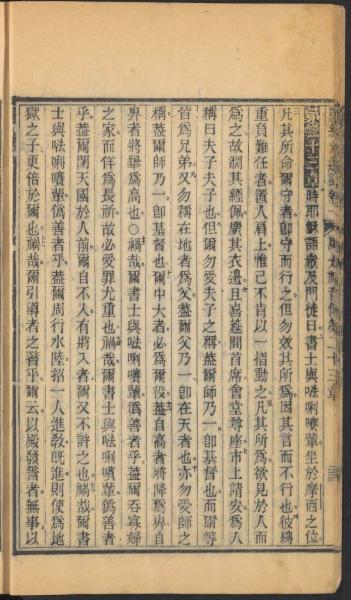 第二十三章時耶穌語眾及門徒曰書士與呿唎㘔輩坐於摩西之位
凡其所命爾守者卽守而行之但勿效其所為因其言而不行也彼縛
重負難任者置人肩上惟己不肯以一指動之凡其所為欲見於人而
為之故濶其經佩廣其衣邊且喜筵間首席會堂尊座市上請安爲人
稱曰夫子夫子也但爾勿愛夫子之稱葢爾師乃一卽基督也而爾等
皆為兄弟又勿稱在地者為父葢爾父乃一卽在天者也亦勿愛師之
稱葢爾師乃一卽基督也爾中大者必為爾役葢自高者將降為卑自
卑者將舉為高也○禍哉爾書士與呿唎㘔輩僞善者乎葢爾吞寡婦
之家而佯為長祈故必受罪尤重也禍哉爾書士與呿唎㘔輩僞善者
乎葢爾閉天國於人前爾自不入有將入者爾又不許之也禍哉爾書
士與呿唎㘔輩僞善者乎葢爾周行水陸招一人進敎旣進則使為地
獄之子更倍於爾也禍哉爾引導者之瞽乎爾云以殿發誓者無事以